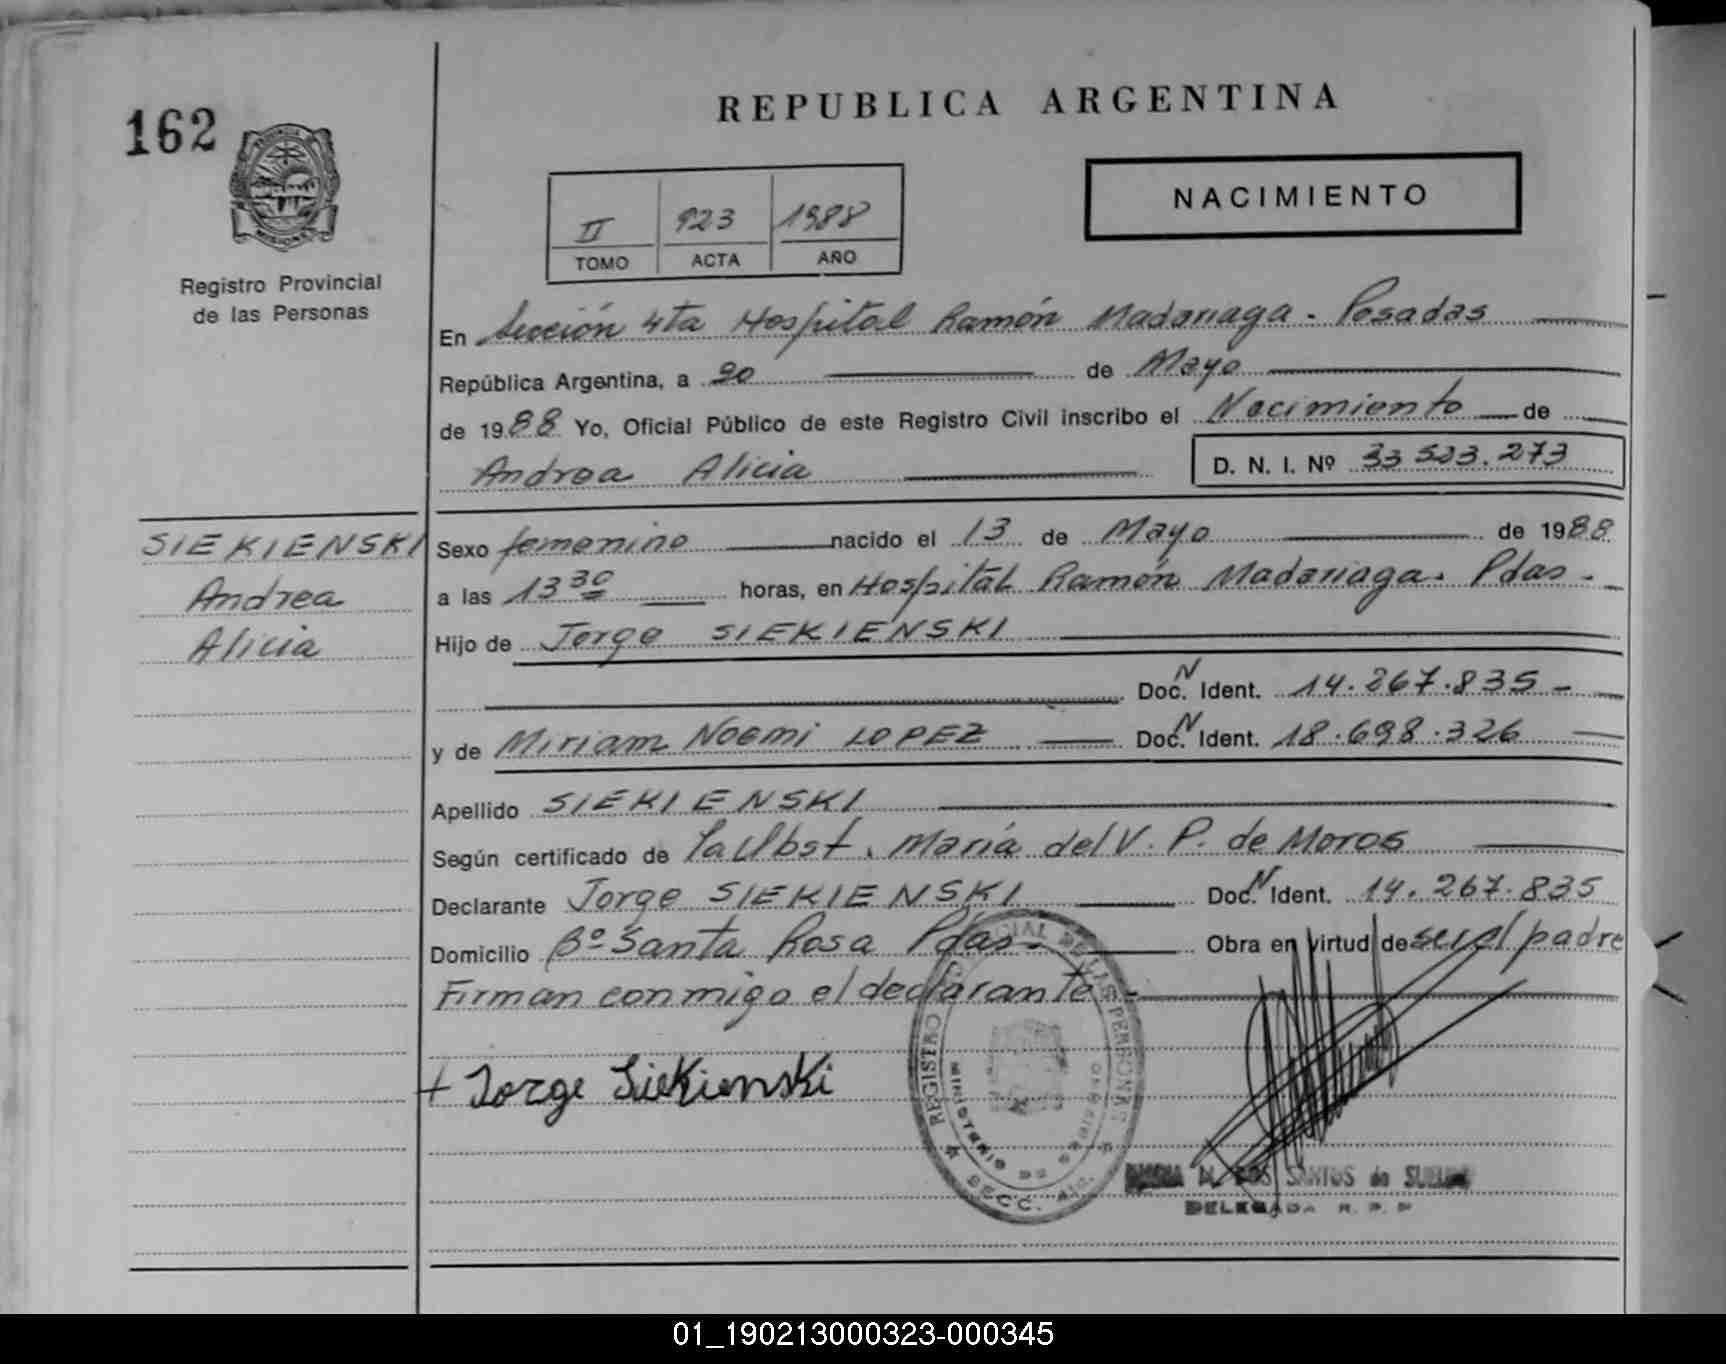 162
REPUBLICA ARGENTINA
NACIMIENTO
II 923 1988
TOMO ACTA AÑO
MISIONES
Registro Provincial
de las Personas
En Sección 4ta Hospital Ramón Madariaga - Posadas
República Argentina, a 20 de Mayo
de 1988 Yo, Oficial Público de este Registro Civil inscribo el Nacimiento de
Andrea Alicia D. N. I. Nº 33 523.273
SIEKIENSKI
Andrea
Alicia
Sexo femenino nacido el 13 de Mayo de 1988
a las 13 30 horas, en Hospital Ramón Madariaga. Pdas.
Hijo de Jorge SIEKIENSKI
Doc. N Ident. 14.267.835 -
y de Miriam Noemi LOPEZ Doc. N Ident. 18.698.326
Apellido SIEKIENSKI
Según certificado de la Obst. María del V. P. de Moros
Declarante Jorge SIEKIENSKI Doc. N Ident. 14.267.835
Domicilio Bº Santa Rosa Pdas. Obra en virtud de ser el padre
Firman conmigo el declarante. -
+ Jorge Siekienski
REGISTRO PROVINCIAL DE LAS PERSONAS
MINISTERIO DE GOBIERNO
SECC. 4ta.
M. DOS SANTOS de
DELEGADA R. P. P
01_190213000323-000345